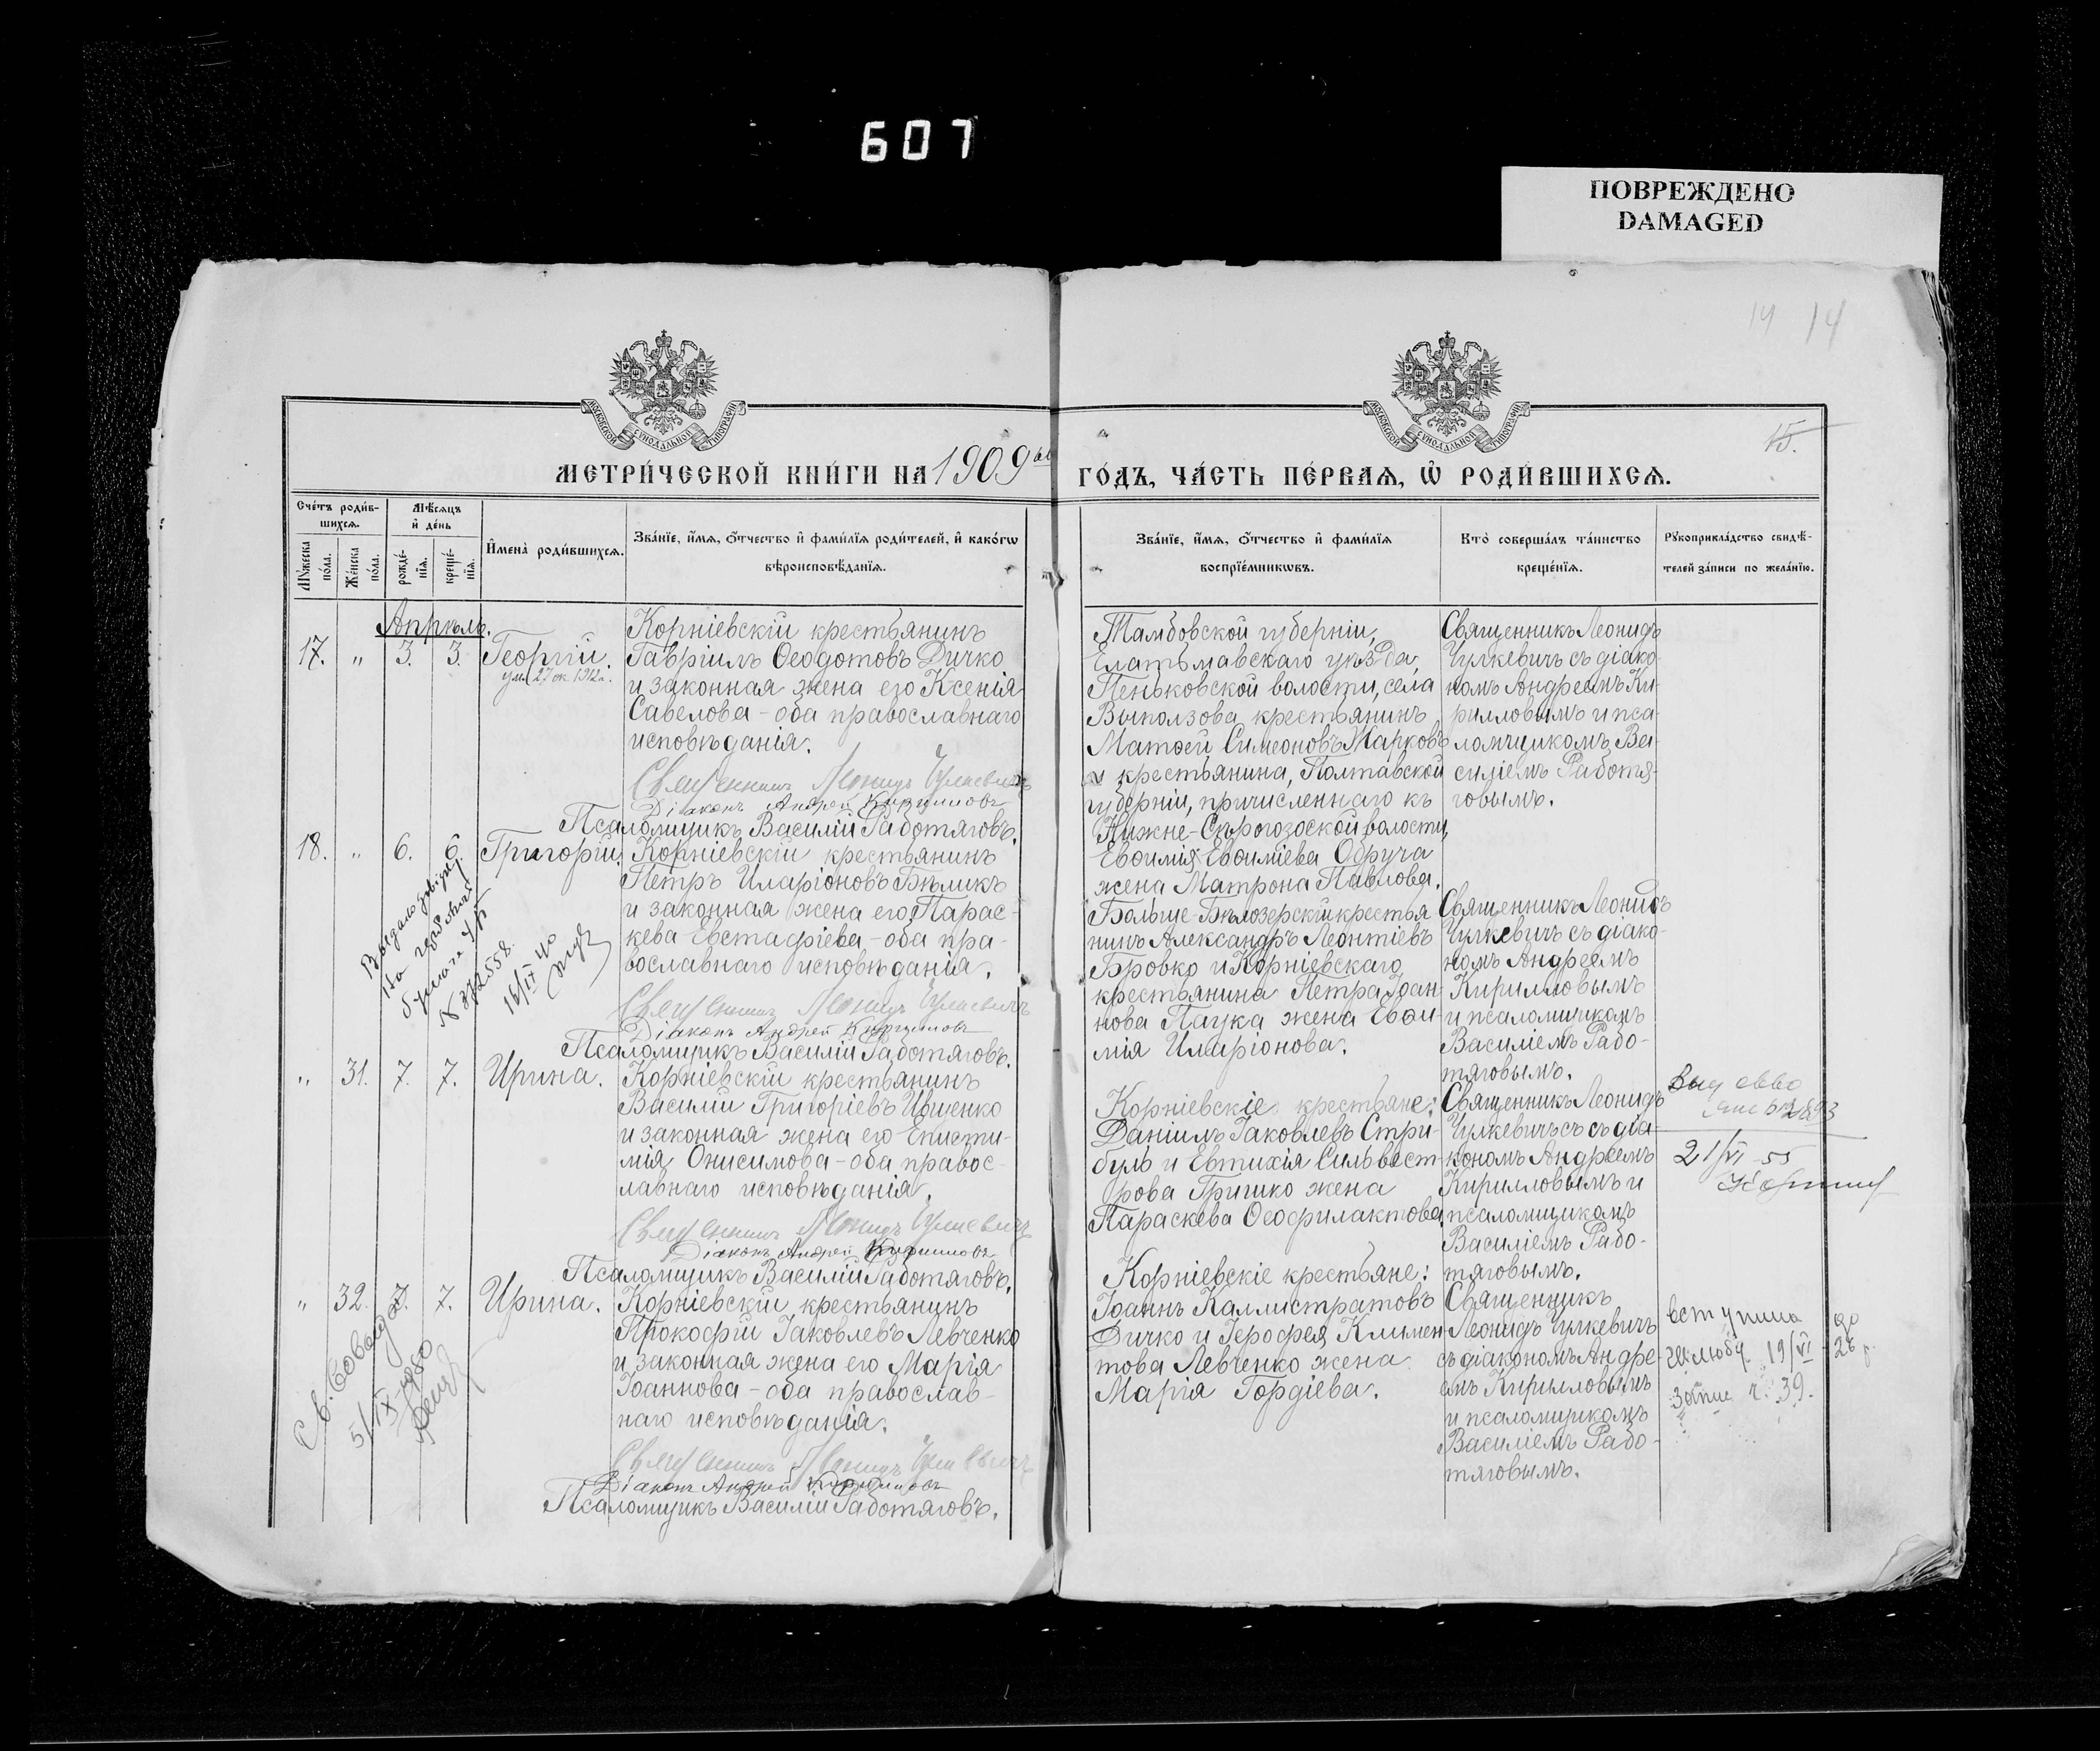 607
ПОВРЕЖДЕНО
DAMAGED
14 14
МОСКОВСКОЙ СУНОДАЛЬНОЙ ТИПОГРАФІИ
МОСКОВСКОЙ СУНОДАЛЬНОЙ ТИПОГРАФІИ
15.
МЕТРИ́ЧЕСКОЙ КНИ́ГИ НА 1909 ГО́ДЪ, ЧА́СТЬ ПЕ́РВАѦ, Ѡ҆ РОДИ́ВШИХСѦ.
Сче́тъ роди́в-
шихсѧ.
Мꙋ́жеска по́ла.
Же́нска по́ла.
Мѣ́сѧцъ
и҆ де́нь
рожде́-
нїѧ.
креще́-
нїѧ.
И҆мена̀ роди́вшихсѧ.
Зва́нїе, и҆́мѧ, ѻ҆́тчество и҆ фами́лїѧ роди́телей, и҆ како́гѡ
вѣроисповѣ́данїѧ.
Зва́нїе, и҆́мѧ, ѻ҆́тчество и҆ фами́лїѧ
воспрїе́мникѡвъ.
Кто̀ соверша́лъ та́инство
креще́нїѧ.
Рꙋкоприкла́дство свидѣ́-
телей за́писи по жела́нїю.
Апрѣль.
17. " 3. 3. Георгій.
ум. 27 ок. 1912 г.
Корніевскій крестьянинъ
Гавріилъ Ѳеодотовъ Дичко
и законная жена его Ксенія
Савелова - оба православнаго
исповѣданія.
Священникъ Леонидъ Чулкевичъ
Діаконъ Андрей Кирилловъ
Псаломщикъ Василій Работяговъ.
Тамбовской губерніи,
Елатьмавскаго уѣзда,
Пеньковской волости, села
Выползова крестьянинъ
Матѳей Симеоновъ Жарковъ
и крестьянина, Полтавской
губерніи, причисленнаго къ
Нижне-Сѣрогозской волости,
Евѳимія Евѳиміева Обруча
жена Матрона Павлова.
Священникъ Леонидъ
Чулкевичъ съ діако-
номъ Андреемъ Ки-
рилловымъ и пса-
ломщикомъ Ва-
силіемъ Работя-
говымъ.
18. " 6. 6. Григорій.
Корніевскій крестьянинъ
Петръ Иларіоновъ Бѣликъ
и законная жена его Парас-
кева Евстафіева, - оба пра-
вославнаго исповѣданія.
Священникъ Леонидъ Чулкевичъ
Діаконъ Андрей Кирилловъ
Псаломщикъ Василій Работяговъ.
№ 372558.
16/IX 40
Больше-Бѣлозерскій крестья
нинъ Александръ Леонтіевъ
Бровко и Корніевскаго
крестьянина Петра Іоан-
нова Паука жена Евѳи-
мія Иларіонова.
Священникъ Леонидъ
Чулкевичъ съ діако-
номъ Андреемъ
Кирилловымъ
и псаломщикомъ
Василіемъ Рабо-
тяговымъ.
" 31. 7. 7. Ирина.
Корніевскій крестьянинъ
Василій Григоріевъ Ивщенко
и законная жена его Еписти-
мія Онисимова - оба правос-
лавнаго исповѣданія.
Священникъ Леонидъ Чулкевичъ
Діаконъ Андрей Кирилловъ
Псаломщикъ Василій Работяговъ.
Корніевскіе крестьяне:
Даніилъ Іаковлевъ Стри-
буль и Евтихія Сильвест-
рова Гришко жена
Параскева Ѳеофилактова.
Священникъ Леонидъ
Чулкевичъ съ съ діа-
кономъ Андреемъ
Кирилловымъ и
псаломщикомъ
Василіемъ Рабо-
тяговымъ.
21/VI - 55
" 32. 7. 7. Ирина.
Корніевскій крестьянинъ
Прокофій Іаковлевъ Левченко
и законная жена его Марія
Іоаннова - оба православ-
наго исповѣданія.
Священникъ Леонидъ Чулкевичъ
Діаконъ Андрей Кирилловъ
Псаломщикъ Василій Работяговъ.
5/IX 1950
Корніевскіе крестьяне:
Іоаннъ Каллистратовъ
Дичко и Іерофея Климен-
това Левченко жена
Марія Гордіева.
Священникъ
Леонидъ Чулкевичъ
съ діакономъ Андре-
емъ Кирилловымъ
и псаломщикомъ
Василіемъ Рабо-
тяговымъ.
вступила до
шлюбу 19/VI - 26 р.